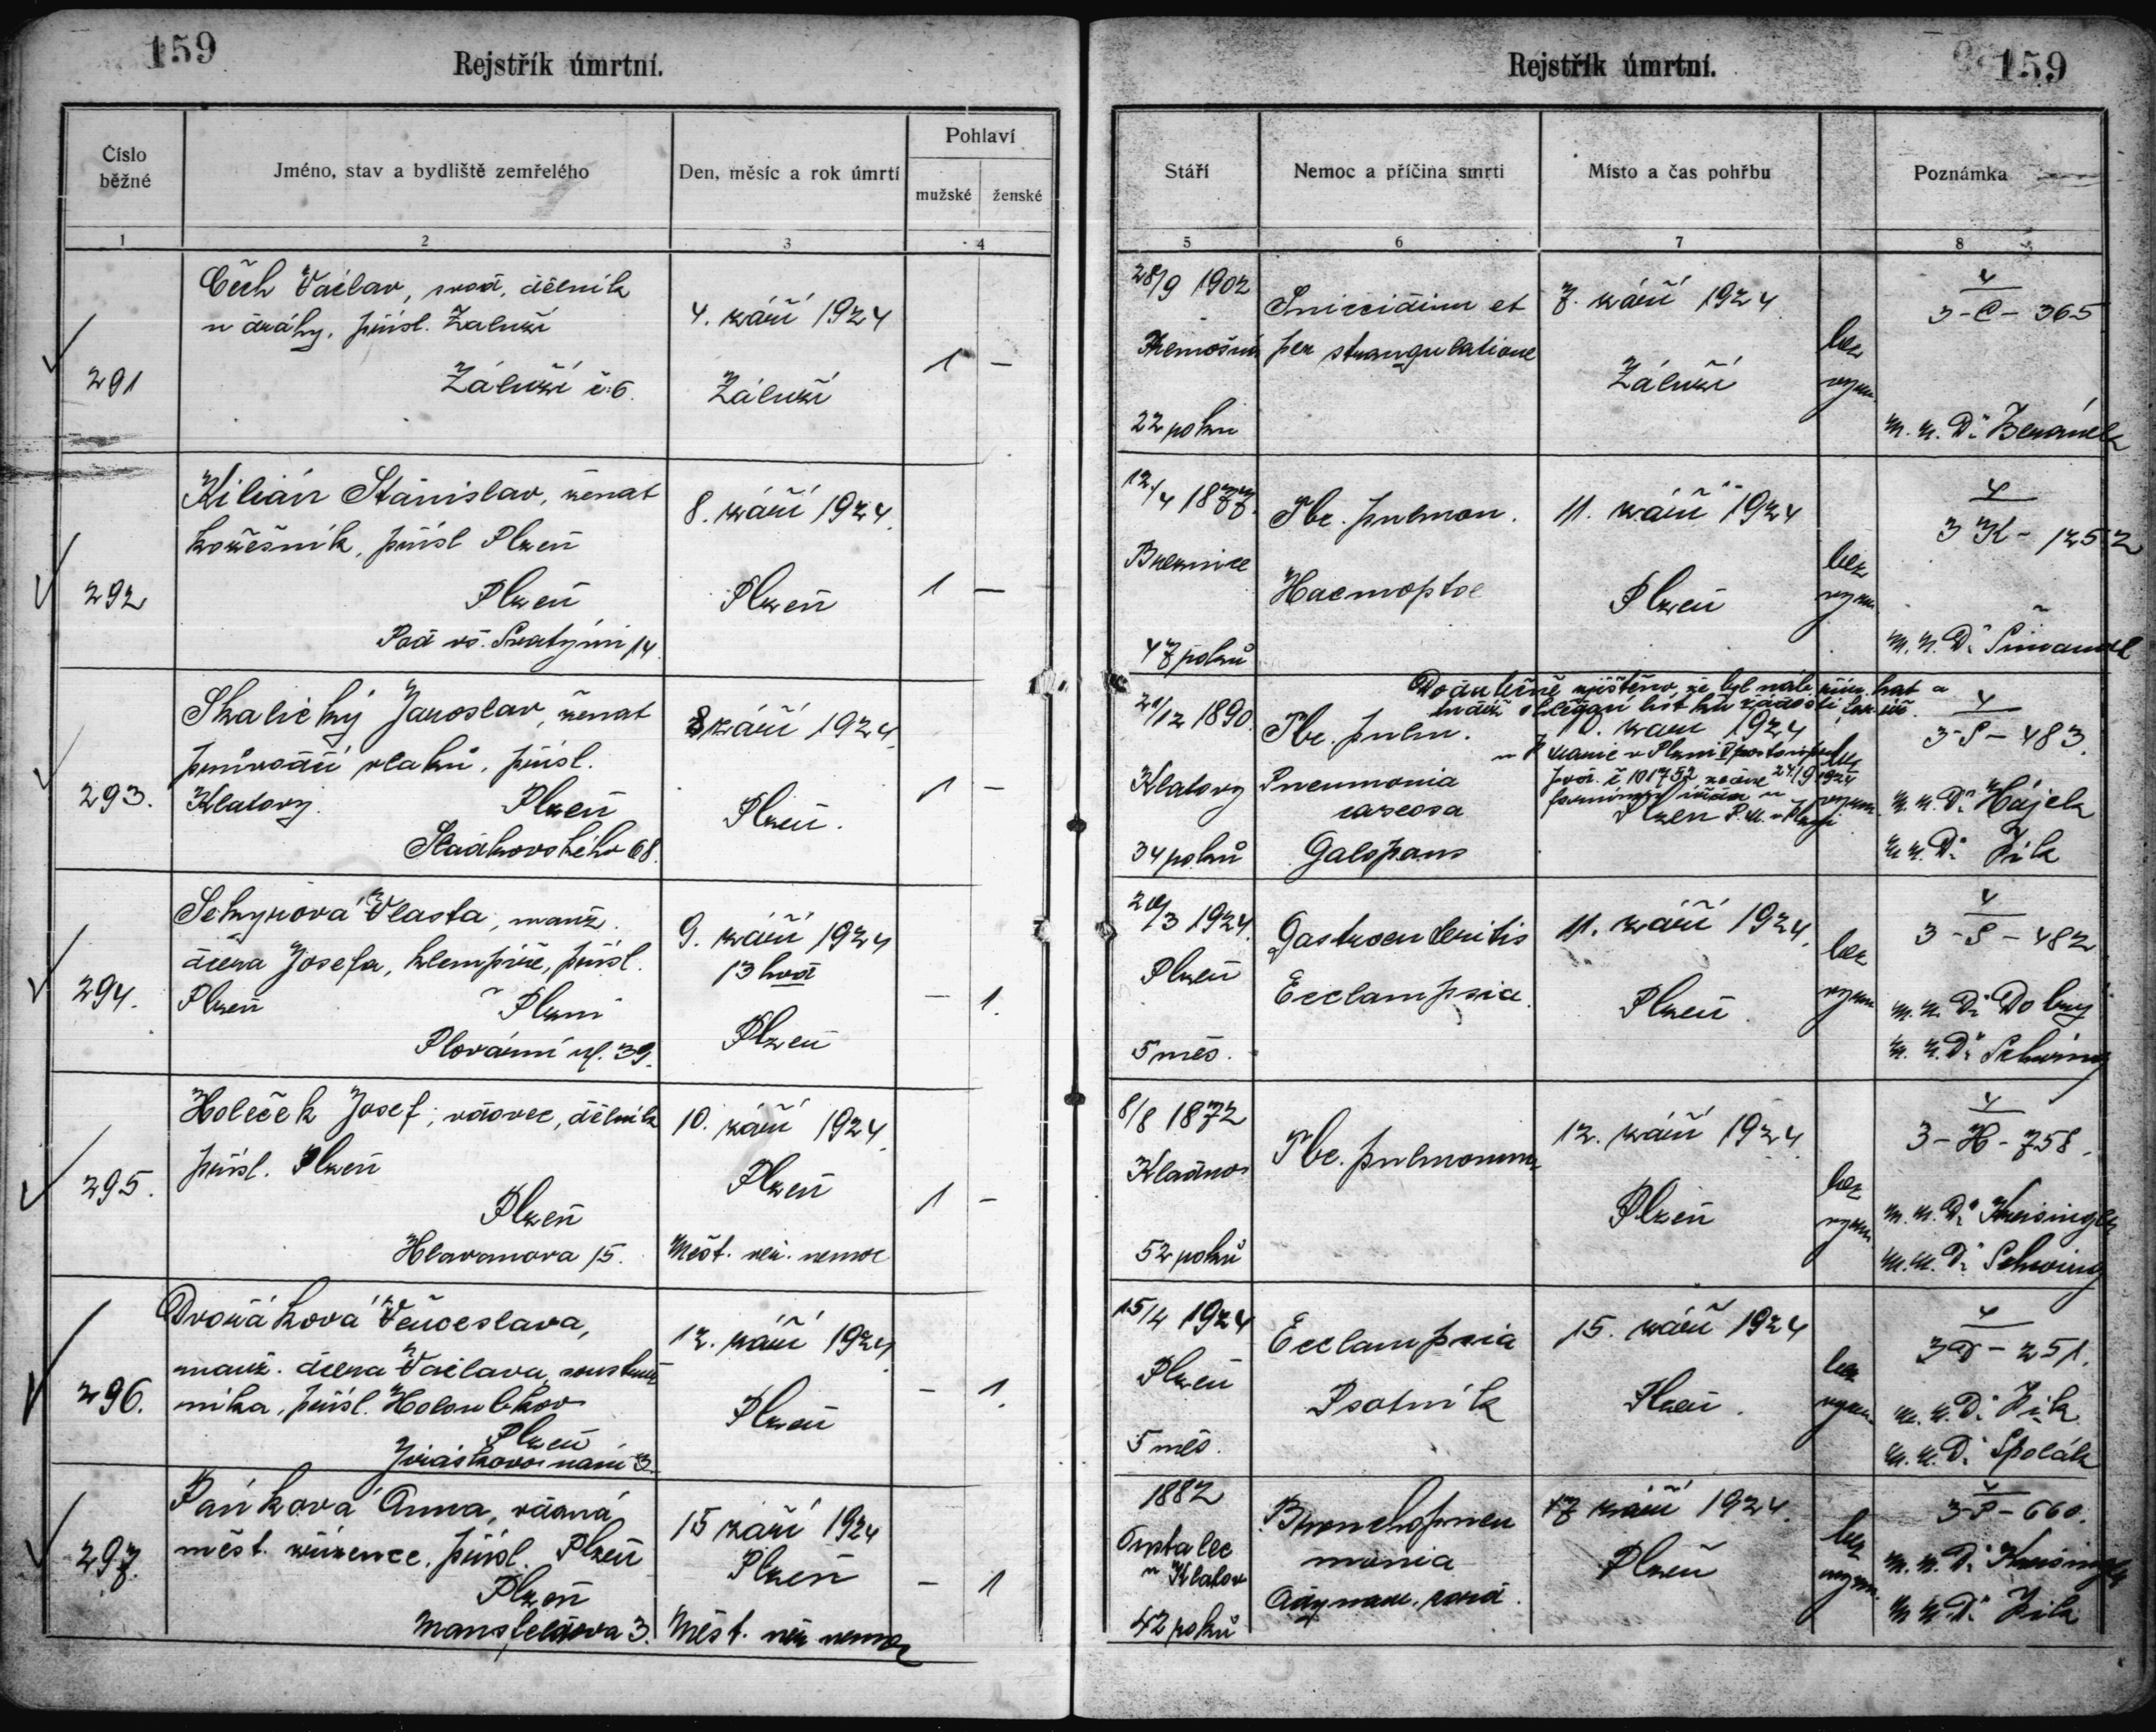 159
Rejstřík úmrtní.
Číslo běžné
Jméno, stav a bydliště zemřelého
Den, měsíc a rok úmrtí
Pohlaví
mužské
ženské
1
2
3
4
291
Čech Václav, svob. dělník
u dráhy, přísl. Záluží
Záluží č. 6.
4. září 1924
Záluží
1 –
292
Kilián Stanislav, ženat
kožešník, přísl Plzeň
Plzeň
Pod vš. Svatými 14
8. září 1924
Plzeň
1 –
293.
Skalický Jaroslav, ženat
průvodčí vlaků, přísl.
Klatovy. Plzeň
Sladkovského 68.
8 září 1924
Plzeň.
1 –
294.
Sekyrová Vlasta, manž.
dcera Josefa, klempíře, přísl.
Plzeň Plzni
Plovární ul. 39.
9. září 1924
13 hod
Plzeň
– 1.
295.
Holeček Josef, vdovec, dělník
přísl. Plzeň
Plzeň
Hlavanova 15.
10. září 1924
Plzeň
Měst. veř. nemoc
1 –
296.
Dvořáková Věnceslava,
manž. dcera Václava, soustruž
níka, přísl. Holoubkov
Plzeň
Jiráskovo nám 3
12. září 1924
Plzeň
– 1.
297.
Paňková Anna, vdaná
měst. zřízence, přísl. Plzeň
Plzeň
Mansfeldova 3.
15 září 1924
Plzeň
Měst. veř nemoc
– 1
159
Rejstřík úmrtní.
Stáří
Nemoc a příčina smrti
Místo a čas pohřbu
Poznámka
5
6
7
8
28/9 1902
Třemošná
22 roků
Suiccidium et
per strangulatione
7. září 1924
Záluží
bez
vyzn.
4
3-C-365
m. u. Dr Beránek
12/4 1877.
Březnice
47 roků
Tbc. pulmon.
Haemoptoe
11. září 1924
Plzeň
bez
vyzn.
4
3 K-1252
m. u. Dr
21/12 1890
Klatovy
34 roků
Tbc. pulm.
Pneumonia
caseosa
Galopans
Dodatečně zjištěno, že byl
10. září 1924
Plzeň
vyzn.
4
3-S-483.
m. u. Dr Hájek
m u. Dr Zik
20/3 1924.
Plzeň
5 měs.
Gastroenteritis
Ecclampsia.
11. září 1924.
Plzeň.
bez
vyzn
4
3-S-482
m. u. Dr Dobrý
m. u. Dr Schwing
8/8 1872
Kladno
52 roků
Tbc. pulmonum
12. září 1924.
Plzeň
bez
vyzn.
4
3-H-758.
m. u. Dr
m. u. Dr Schwing
15/4 1924
Plzeň
5 měs.
Ecclampsia
Psotník
15. září 1924
Plzeň.
bez
vyzn.
4
3D-251.
m. u. Dr Zik
m. u. Dr Spolák
1882
u Klatov
42 roků
Bronchopneu
monia
17 září 1924.
Plzeň
bez
vyzn.
4
3-P-660.
m. u. Dr
m u. Dr Zik